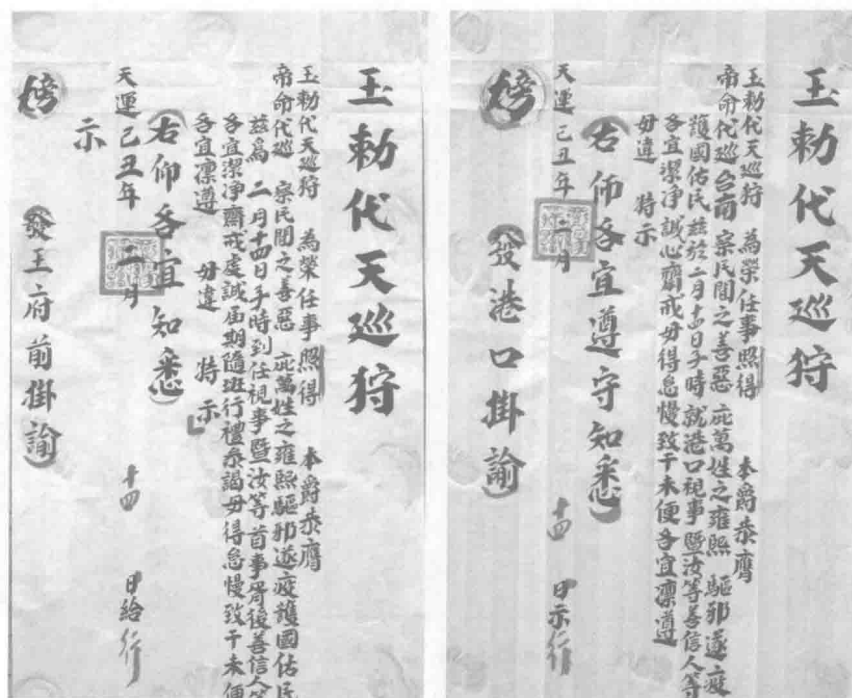 玉勅代天巡狩
玉勅代天巡狩　為榮任事照得　本爵恭膺
帝命代巡台南　察民間之善惡　庇萬姓之雍熙　驅邪逐疫
護國佑民　茲於二月十四日子時　就港口視事暨汝等善信人等
各宜潔淨　誠心齋戒毋得怠慢致干未便各宜凜遵
毋違　特示
右仰各宜遵守知悉
天運己丑年　二月　十四　日示行
榜　發港口掛諭
玉勅代天巡狩
玉勅代天巡狩　為榮任事照得　本爵恭膺
帝命代巡　察民間之善惡　庇萬姓之雍熙驅邪逐疫護國佑民
茲為　二月十四日子時到任視事暨汝等首事胥後善信人等
各宜潔淨齋戒虔誠屆期隨班行禮叅謁毋得怠慢致干未便
各宜凜遵　毋違　特示
右仰各宜知悉
天運己丑年　二月　十四　日給行
示
榜　發王府前掛諭